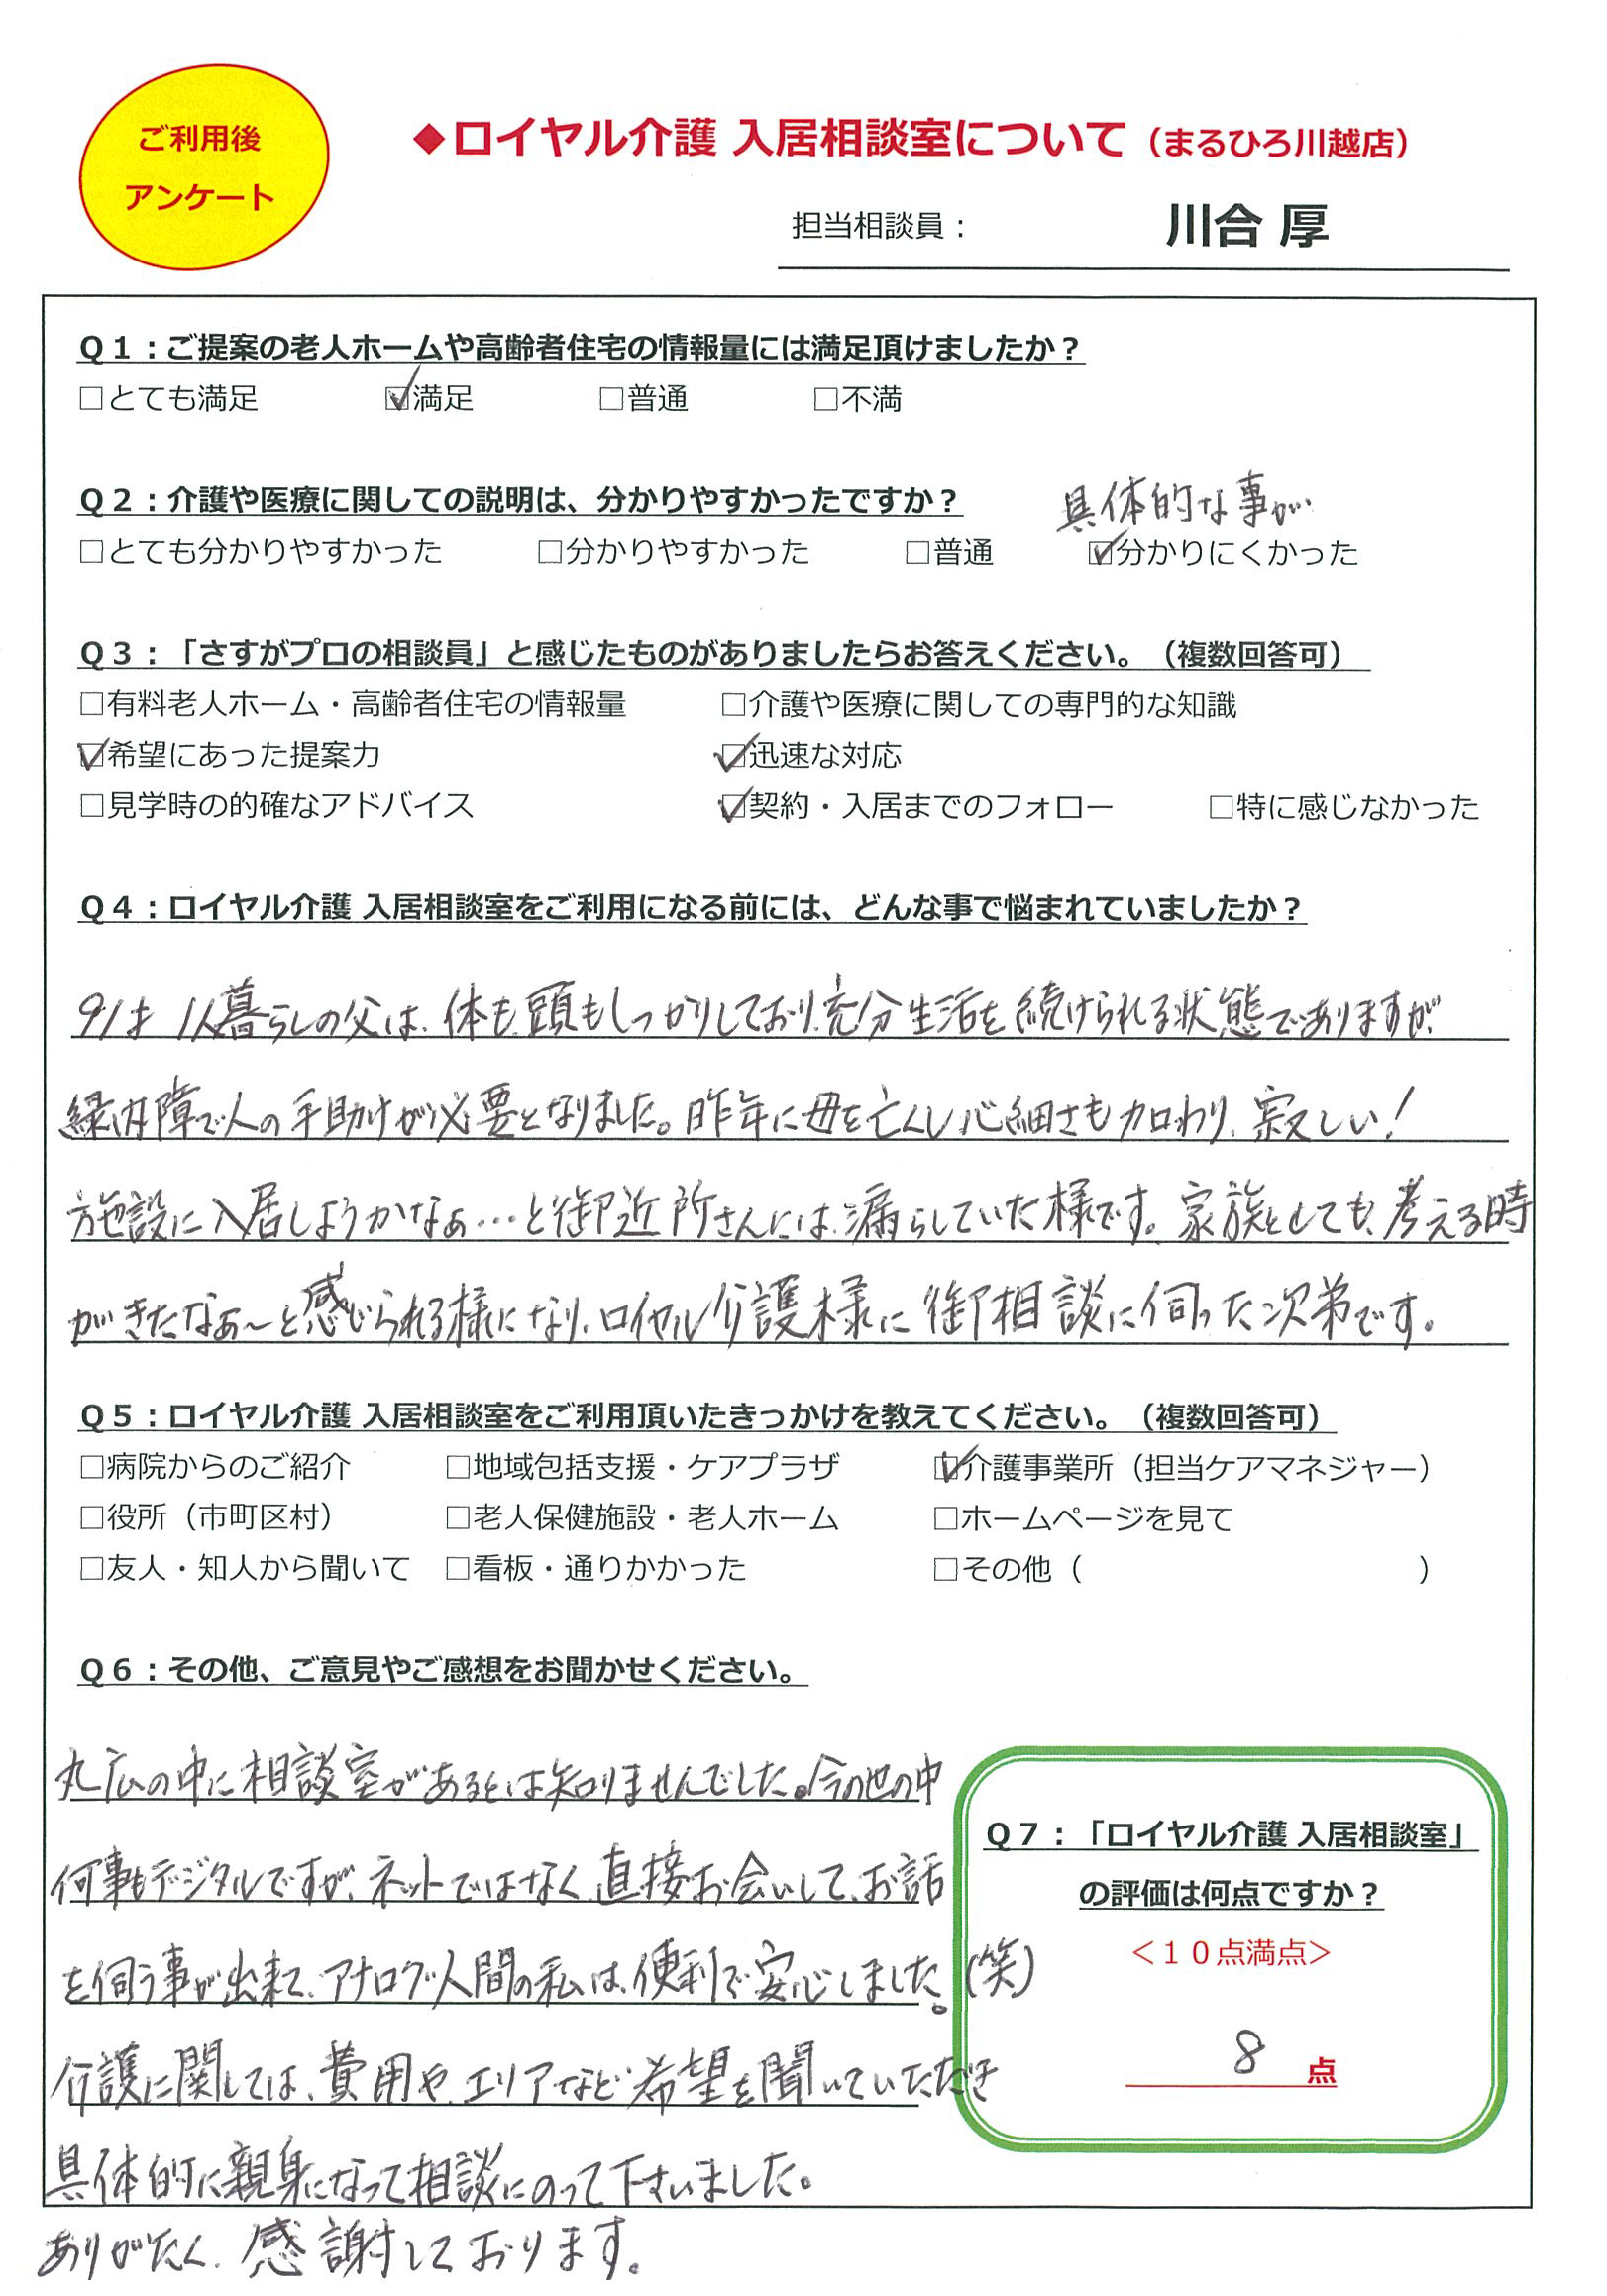 ご利用後
アンケート
◆ロイヤル介護 入居相談室について（まるひろ川越店）
担当相談員： 川合 厚
Q1：ご提案の老人ホームや高齢者住宅の情報量には満足頂けましたか？
□とても満足 ☑満足 □普通 □不満
Q2：介護や医療に関しての説明は、分かりやすかったですか？ 具体的な事が
□とても分かりやすかった □分かりやすかった □普通 ☑分かりにくかった
Q3：「さすがプロの相談員」と感じたものがありましたらお答えください。（複数回答可）
□有料老人ホーム・高齢者住宅の情報量 □介護や医療に関しての専門的な知識
☑希望にあった提案力 ☑迅速な対応
□見学時の的確なアドバイス ☑契約・入居までのフォロー □特に感じなかった
Q4：ロイヤル介護 入居相談室をご利用になる前には、どんな事で悩まれていましたか？
91才 1人暮らしの父は、体も頭もしっかりしており、充分生活を続けられる状態でありますが、
緑内障で人の手助けが必要となりました。昨年に母を亡くし心細さも加わり、寂しい！
施設に入居しようかなぁ…と御近所さんには、漏らしていた様です。家族としても、考える時
がきたなぁ～と感じられる様になり、ロイヤル介護様に御相談に伺った次第です。
Q5：ロイヤル介護 入居相談室をご利用頂いたきっかけを教えてください。（複数回答可）
□病院からのご紹介 □地域包括支援・ケアプラザ ☑介護事業所（担当ケアマネジャー）
□役所（市町区村） □老人保健施設・老人ホーム □ホームページを見て
□友人・知人から聞いて □看板・通りかかった □その他（ ）
Q6：その他、ご意見やご感想をお聞かせください。
丸広の中に相談室があるとは知りませんでした。今の世の中
何事もデジタルですが、ネットではなく、直接お会いして、お話
を伺う事が出来て、アナログ人間の私は、便利で安心しました。(笑)
介護に関しては、費用や、エリアなど希望を聞いていただき
具体的に親身になって相談にのって下さいました。
ありがたく、感謝しております。
Q7：「ロイヤル介護 入居相談室」
の評価は何点ですか？
＜10点満点＞
8 点